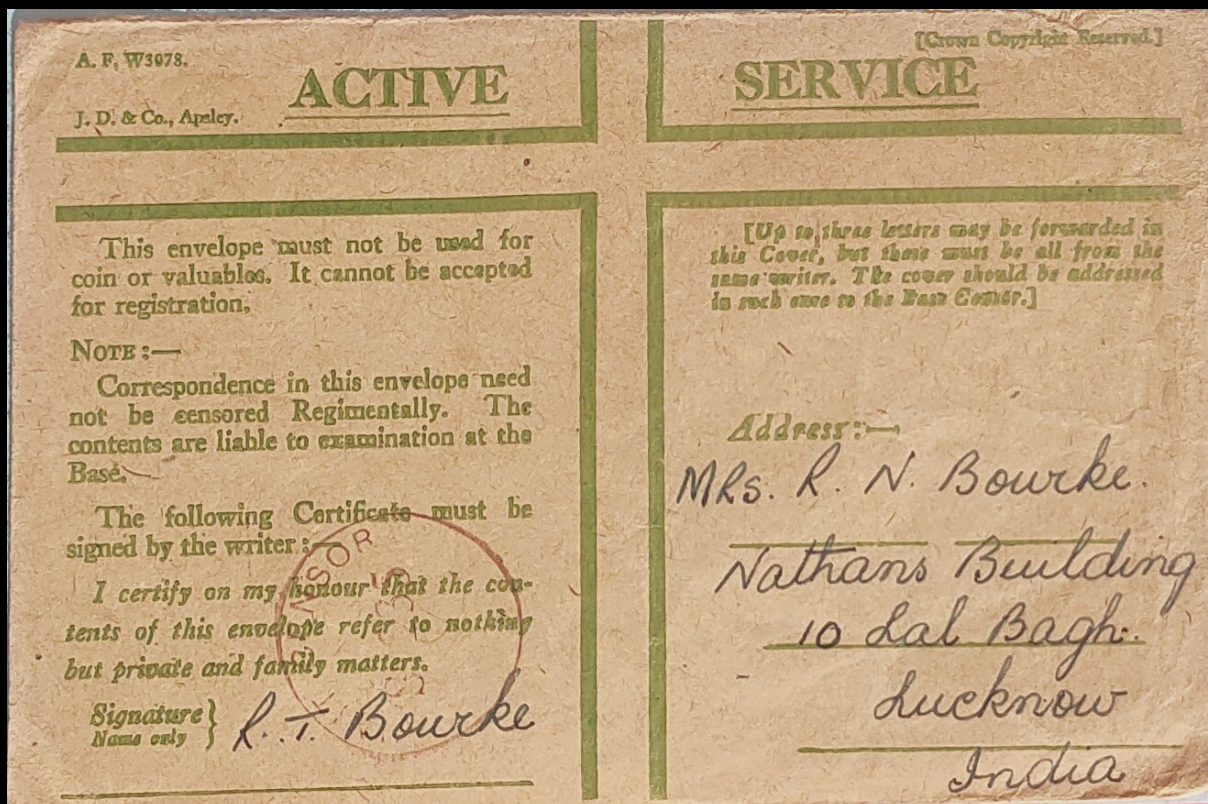 A. F. W3078.
J. D. & Co., Apsley.
ACTIVE
SERVICE
[Crown Copyright Reserved.]
This envelope must not be used for
coin or valuables. It cannot be accepted
for registration.
NOTE :—
Correspondence in this envelope need
not be censored Regimentally. The
contents are liable to examination at the
Base.
The following Certificate must be
signed by the writer :—
I certify on my honour that the con-
tents of this envelope refer to nothing
but private and family matters.
Signature }
Name only
R. T. Bourke
[Up to three letters may be forwarded in
this Cover, but these must be all from the
same writer. The cover should be addressed
in such case to the Base Censor.]
Address:—
MRs. R. N. Bourke.
Nathans Building
10 Lal Bagh.
Lucknow
India